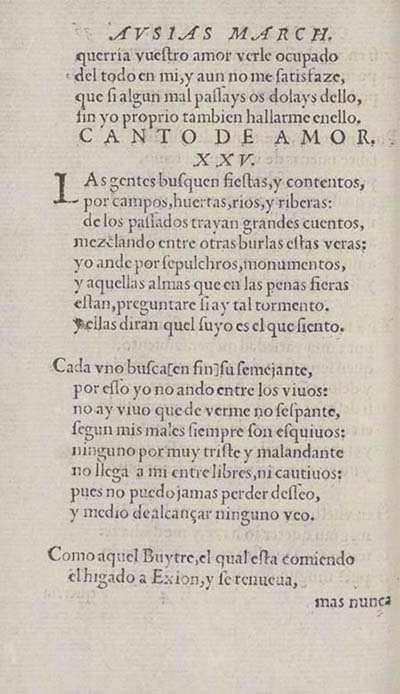 AVSIAS MARCH.
querria vuestro amor verle ocupado
del todo en mi, y aun no me satisfaze,
que si algun mal passays os dolays dello,
sin yo proprio tambien hallarme enello.
CANTO DE AMOR.
XXV.
LAs gentes busquen fiestas, y contentos,
por campos, huertas, rios, y riberas:
de los passados trayan grandes cuentos,
mezclando entre otras burlas estas veras:
yo ande por sepulchros, monumentos,
y aquellas almas que en las penas fieras
estan, preguntare si ay tal tormento.
y ellas diran quel suyo es el que siento.
Cada vno busca [en fin] su semejante,
por esso yo no ando entre los viuos:
no ay viuo que de verme no sespante,
segun mis males siempre son esquiuos:
ninguno por muy triste y malandante
no llega a mi entre libres, ni cautiuos:
pues no puedo jamas perder desseo,
y medio de alcançar ninguno veo.
Como aquel Buytre, el qual esta comiendo
el higado a Exion, y se renueua,
mas nunca